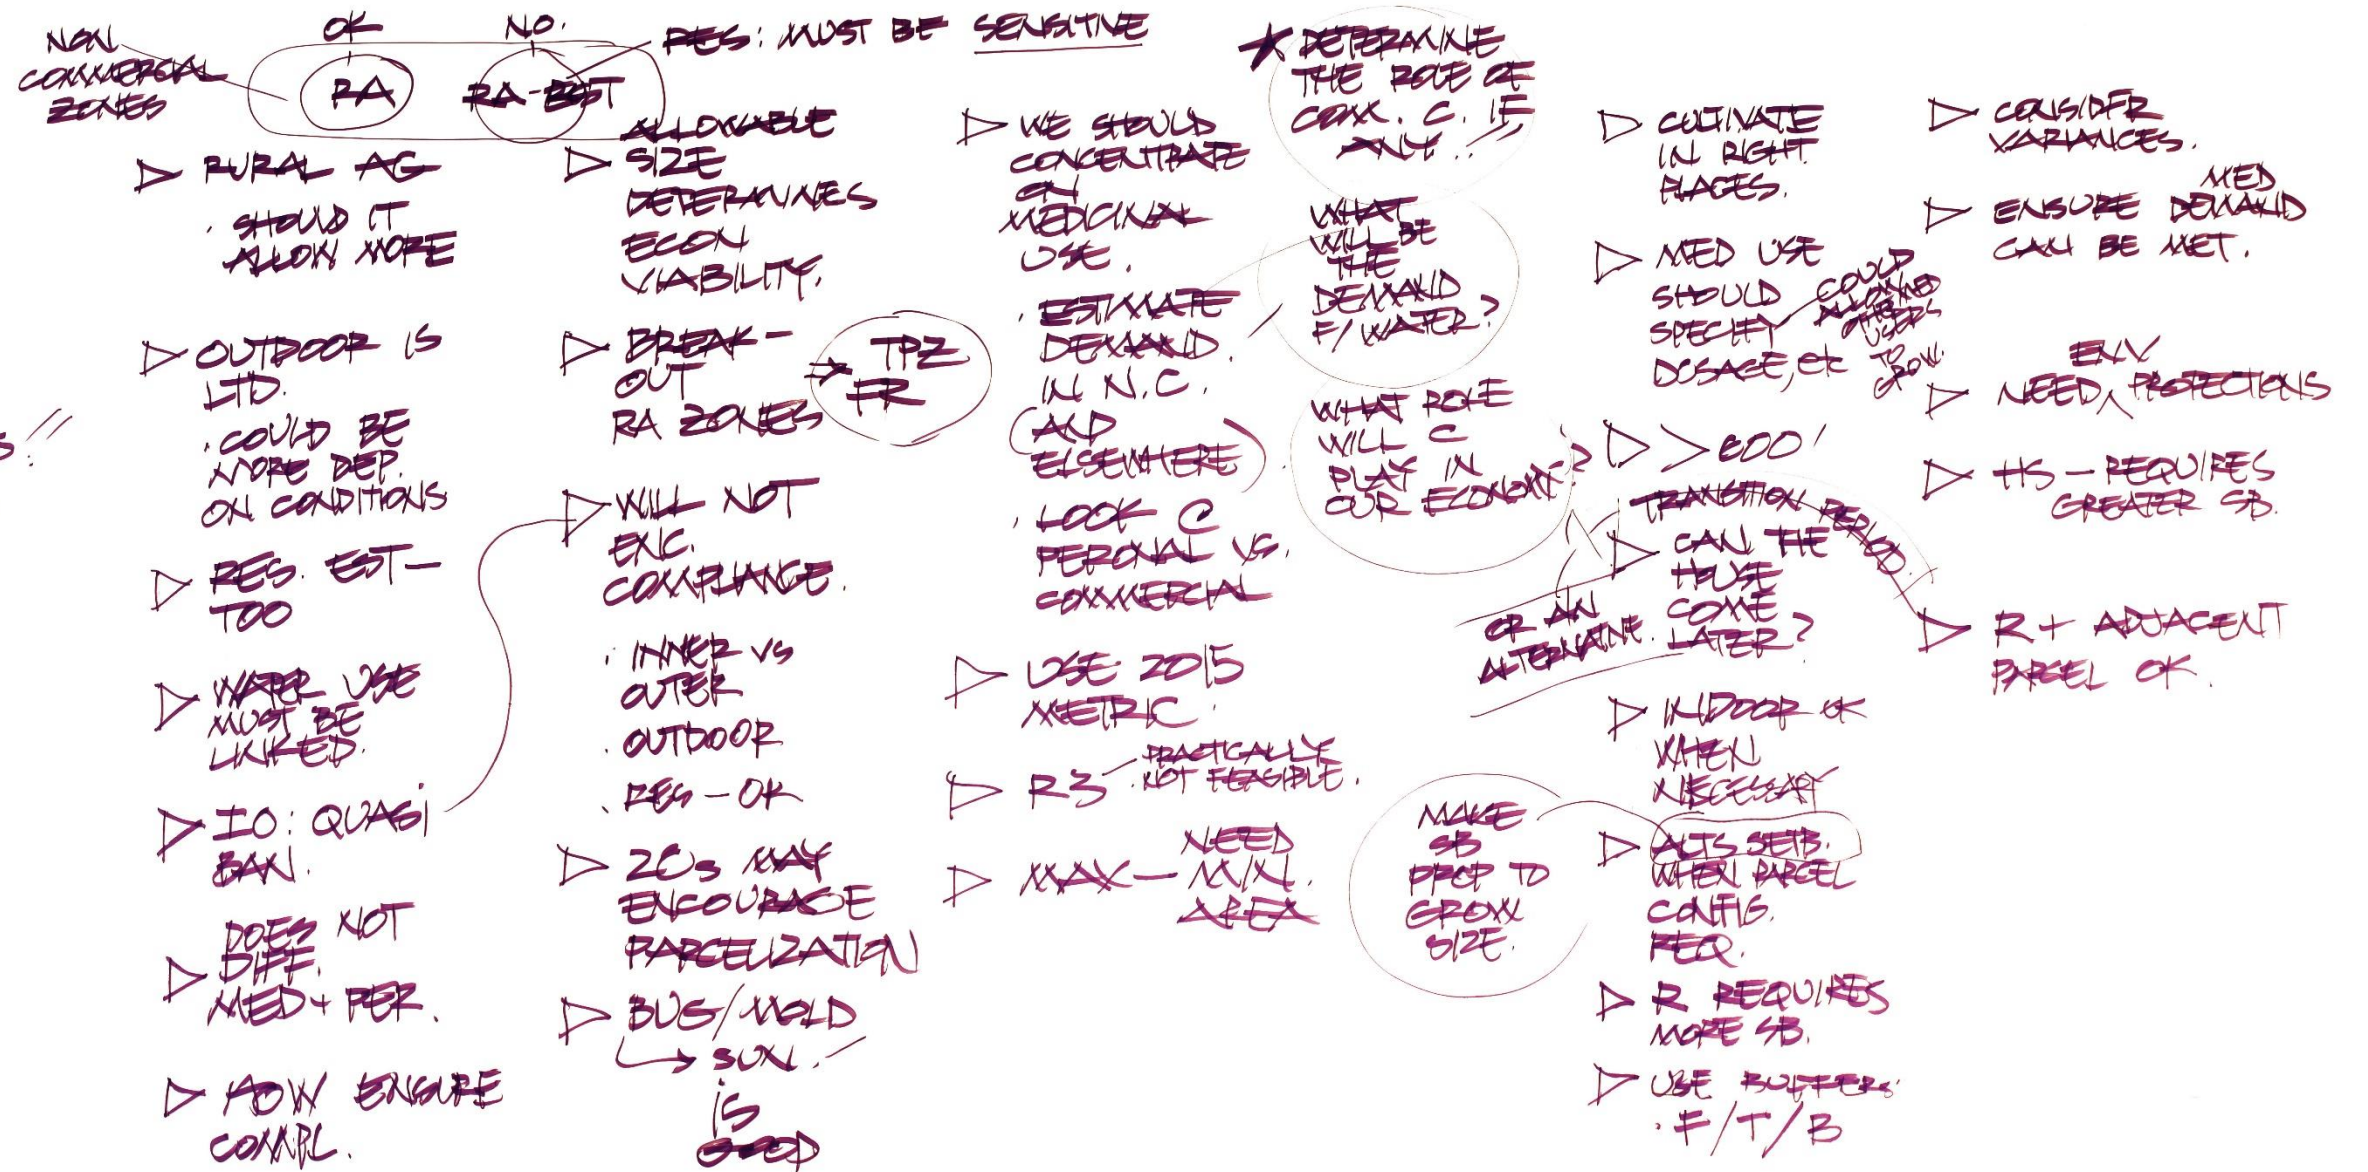 NON
COMMERCIAL
ZONES
OK
RA
NO.
RES: MUST BE SENSITIVE
RURAL AG
. SHOULD IT
ALLOW MORE
OUTDOOR IS
LTD.
. COULD BE
MORE DEP.
ON CONDITIONS
RES. EST-
TOO
WATER USE
MUST BE
LINKED.
IO: QUASI
BAN.
DOES NOT
DIFF.
MED + PER.
HOW ENSURE
COMPL.
ALLOWABLE
SIZE
DETERMINES
ECON
VIABILITY.
BREAK-
OUT
RA ZONES
⇒ TPZ
FR
WILL NOT
ENC.
COMPLIANCE.
. INNER VS
OUTER
. OUTDOOR
. RES - OK
ZCs MAY
ENCOURAGE
PARCELIZATION
BUG/MOLD
→ SUN.
is
GOOD
WE SHOULD
CONCENTRATE
ON
MEDICINAL
USE.
. ESTIMATE
DEMAND.
IN N.C.
(AND
ELSEWHERE)
. LOOK @
PERONAL VS.
COMMERCIAL
USE 2015
METRIC.
R3 - PRACTICALLY
NOT FEASIBLE.
MAX - NEED
MIN.
AREA
★ DETERMINE
THE ROLE OF
COMM. C. IF
ANY..
WHAT
WILL BE
THE
DEMAND
F/WATER?
WHAT ROLE
WILL C
PLAY IN
OUR ECONOMY?
OR AN
ALTERNATIVE.
MAKE
SB
PROP TO
GROW
SIZE.
CULTIVATE
IN RIGHT
PLACES.
MED USE
SHOULD
SPECIFY
DOSAGE, etc
COULD
ALLOWED
OTHER
USERS
TO
GROW.
> 600'
TRANSITION PERIOD.
CAN THE
HOUSE
COME
LATER?
INDOOR OK
WHEN
NECESSARY
ALTS SETB.
WHEN PARCEL
CONFIG.
REQ.
R REQUIRES
MORE SB.
USE BUFFERS.
. F/T/B
CONSIDER
VARIANCES.
MED
ENSURE DEMAND
CAN BE MET.
ENV
NEED ^ PROTECTIONS
HS - REQUIRES
GREATER SB.
R + ADJACENT
PARCEL OK.